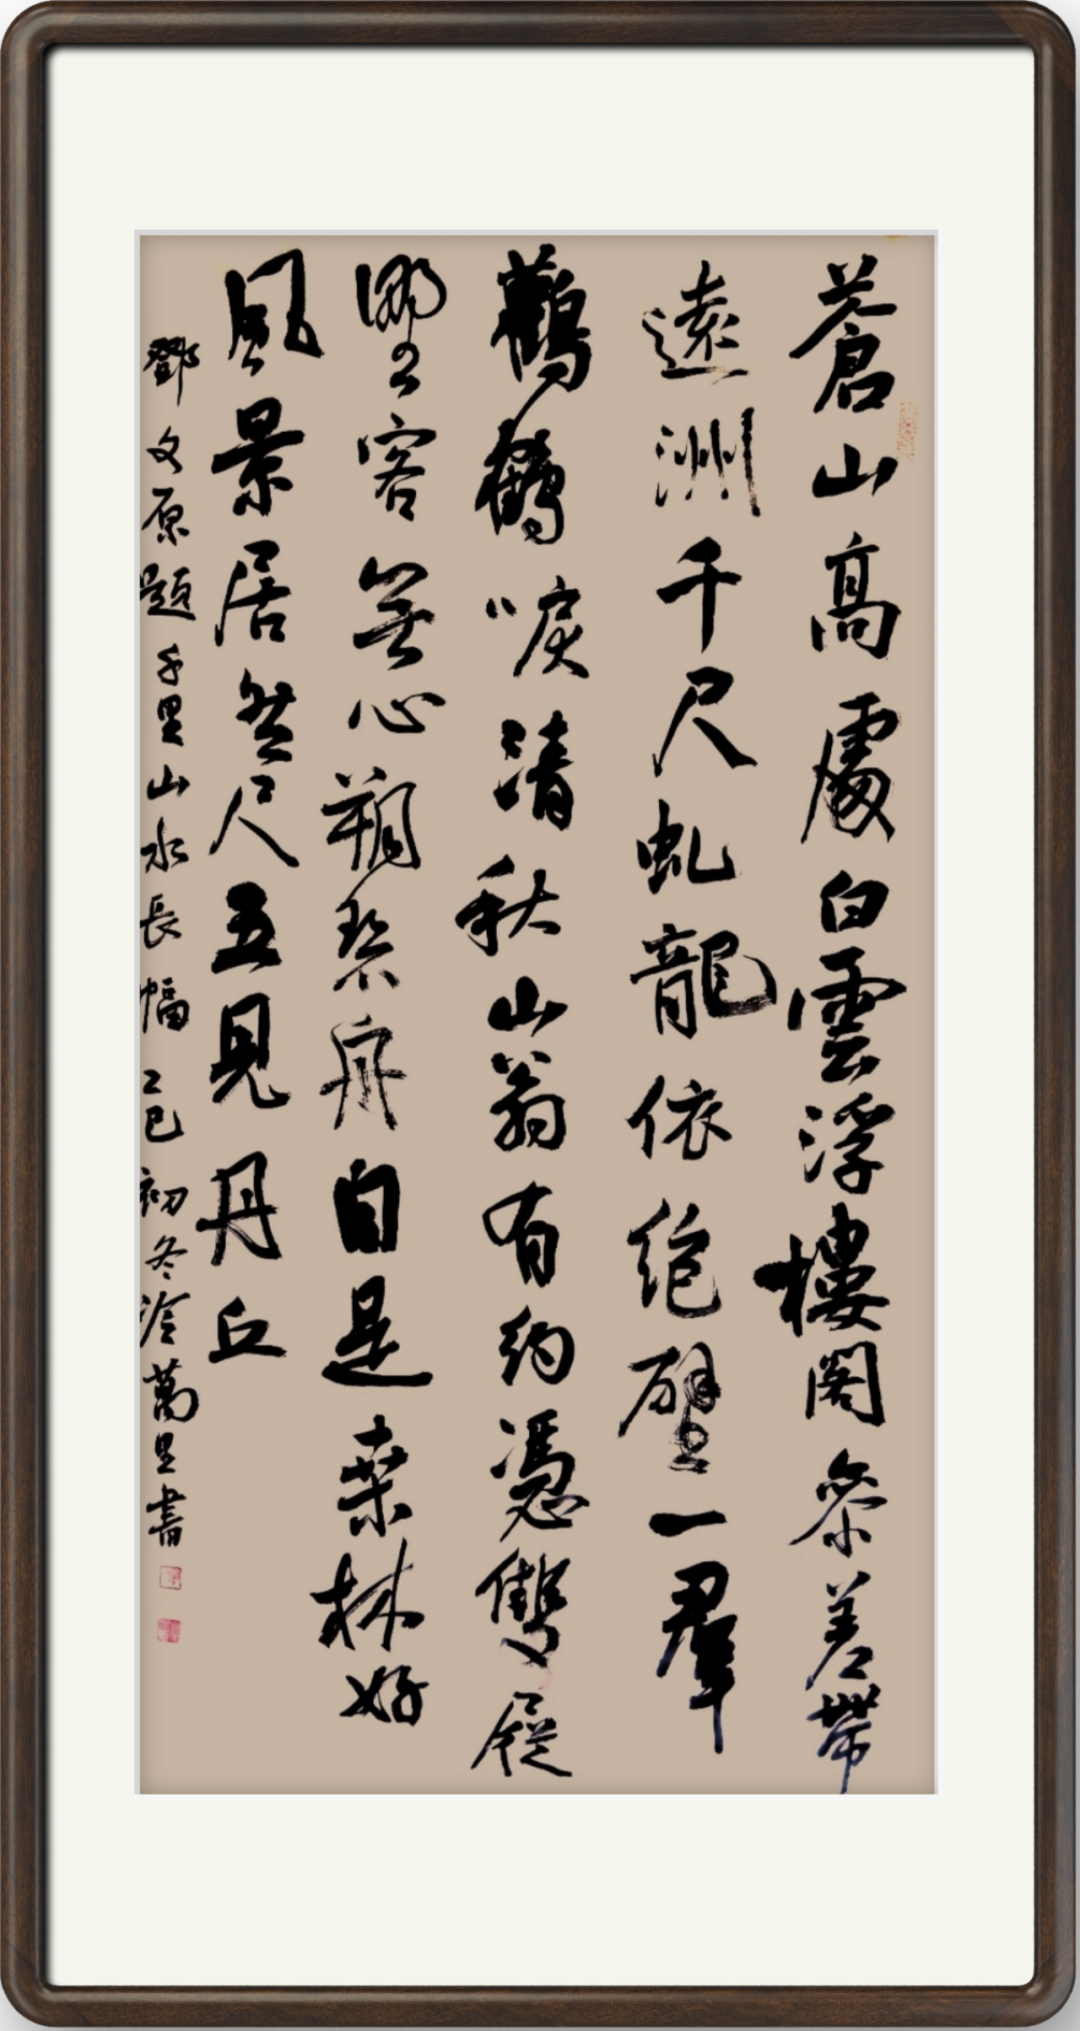 蒼山高處白雲浮樓閣參差帶
遠洲千尺虬龍依絕壁一羣
鸛鶴唳清秋山翁有約憑雙屐
野客無心舟自是桑林好
風景居然尺五見丹丘
鄧文原題千里山水長幅 乙巳初冬萬里書